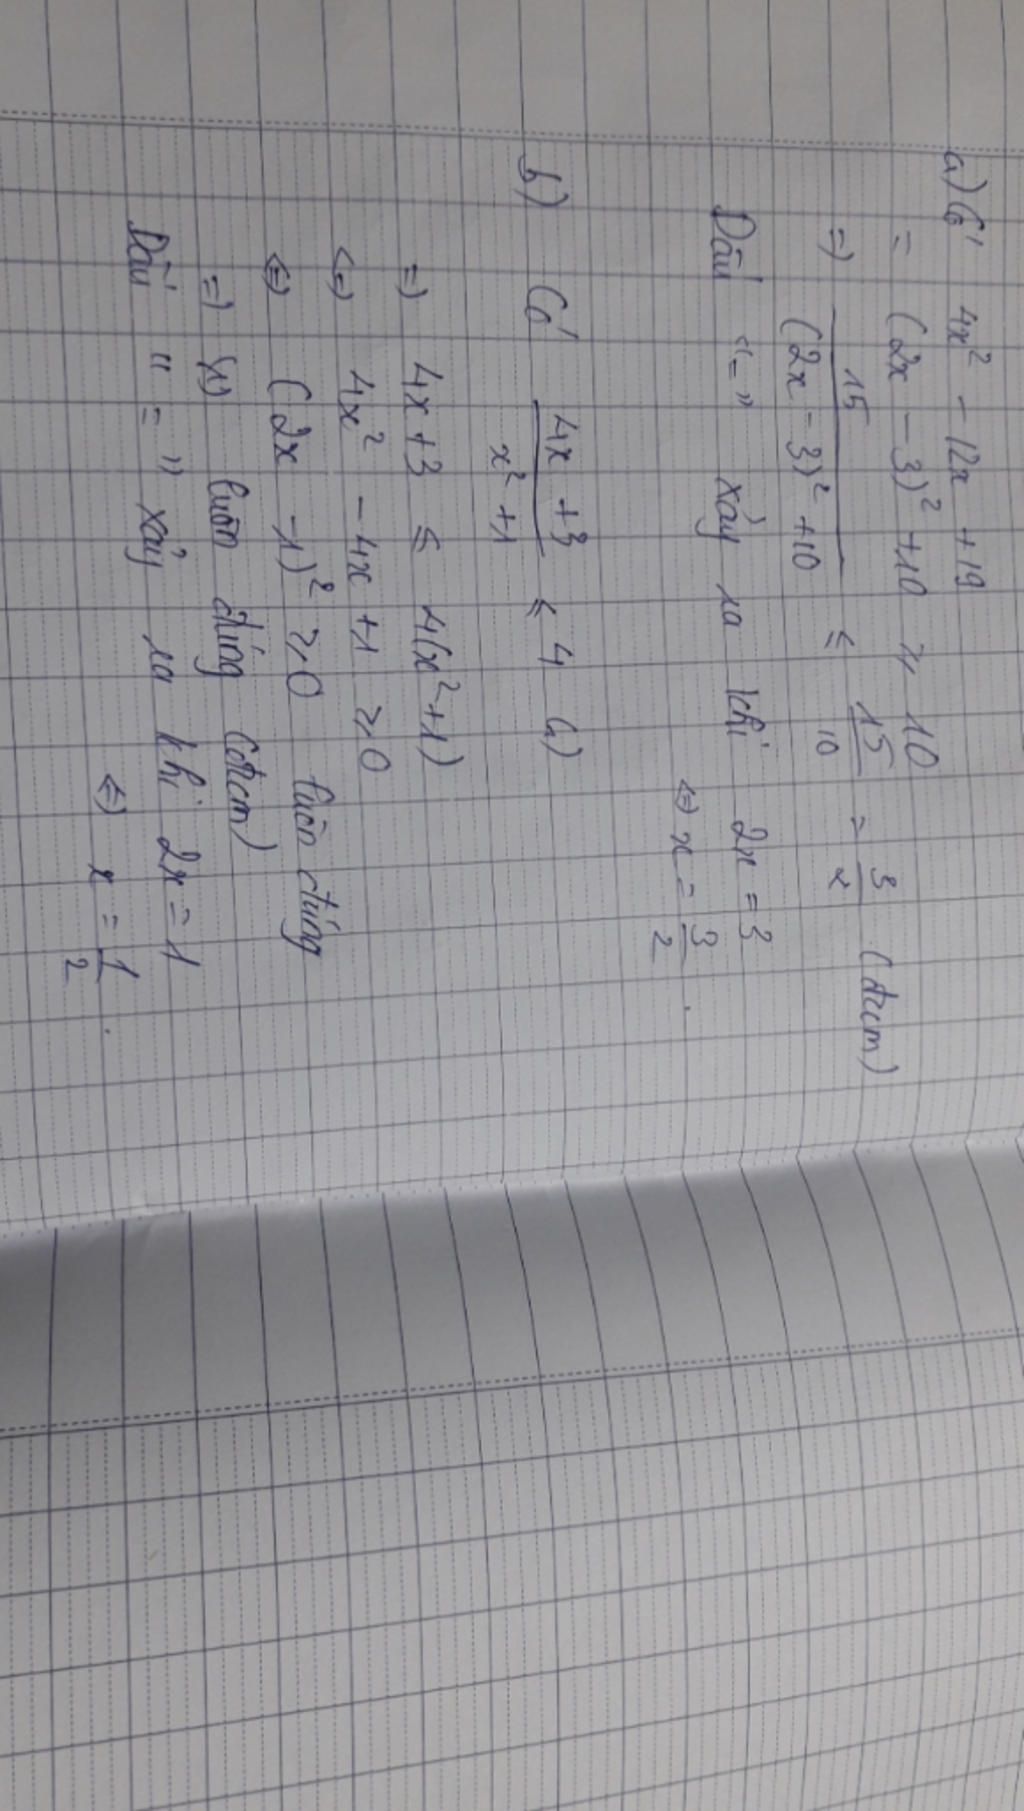 a) Có 4x² - 12x + 19
= (2x - 3)² + 10 ≥ 10
=) 15/((2x - 3)² + 10) ≤ 15/10 = 3/2 (đccm)
Dấu "=" xảy ra khi 2x = 3
<=> x = 3/2.
b) Có (4x + 3)/(x² + 1) ≤ 4 (1)
=) 4x + 3 ≤ 4(x² + 1)
<=) 4x² - 4x + 1 ≥ 0
<=> (2x - 1)² ≥ 0 luôn đúng
=) (1) luôn đúng (đccm)
Dấu "=" xảy ra khi 2x = 1
<=> x = 1/2.